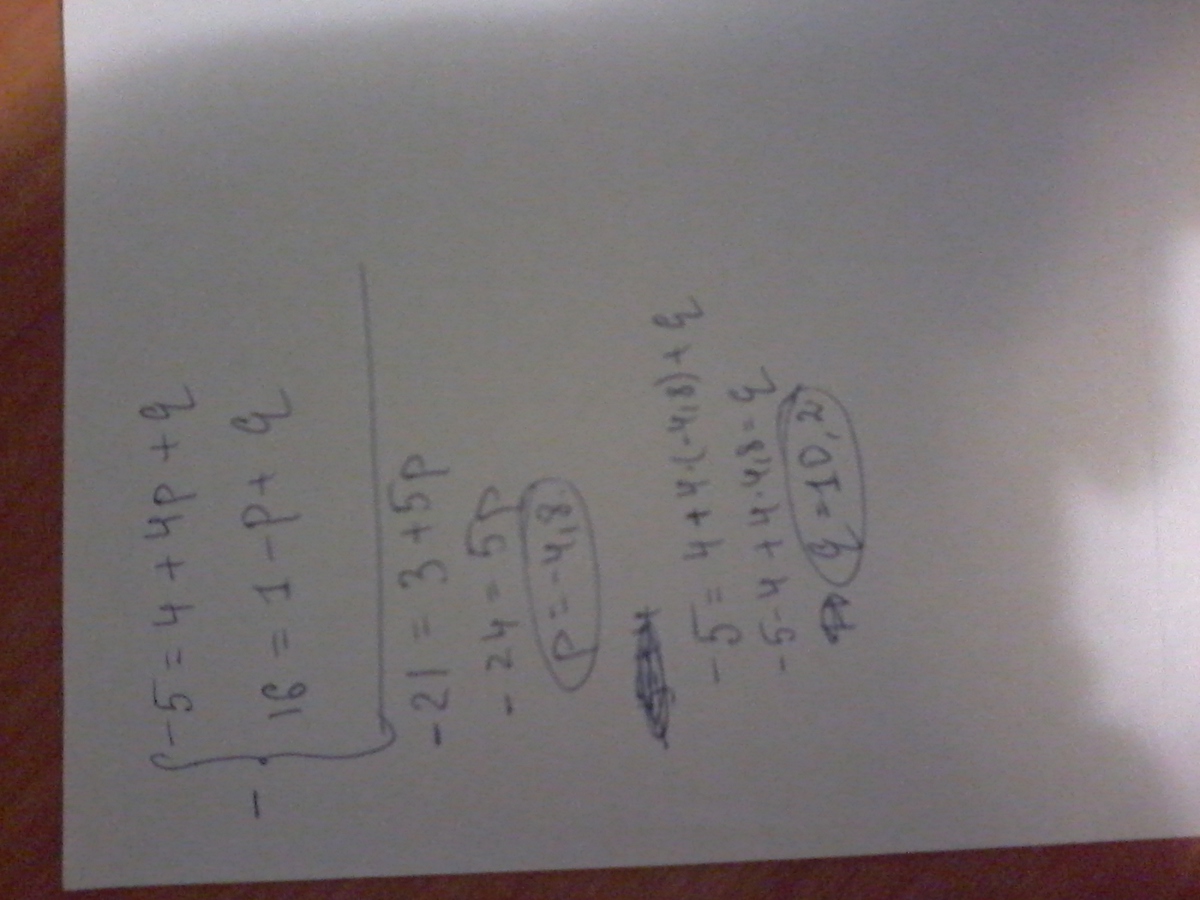 -5 = 4 + 4p + q
- 16 = 1 - p + q
-21 = 3 + 5p
-24 = 5p
p = -4,8
-5 = 4 + 4·(-4,8) + q
-5-4 + 4·4,8 = q
q = 10,2